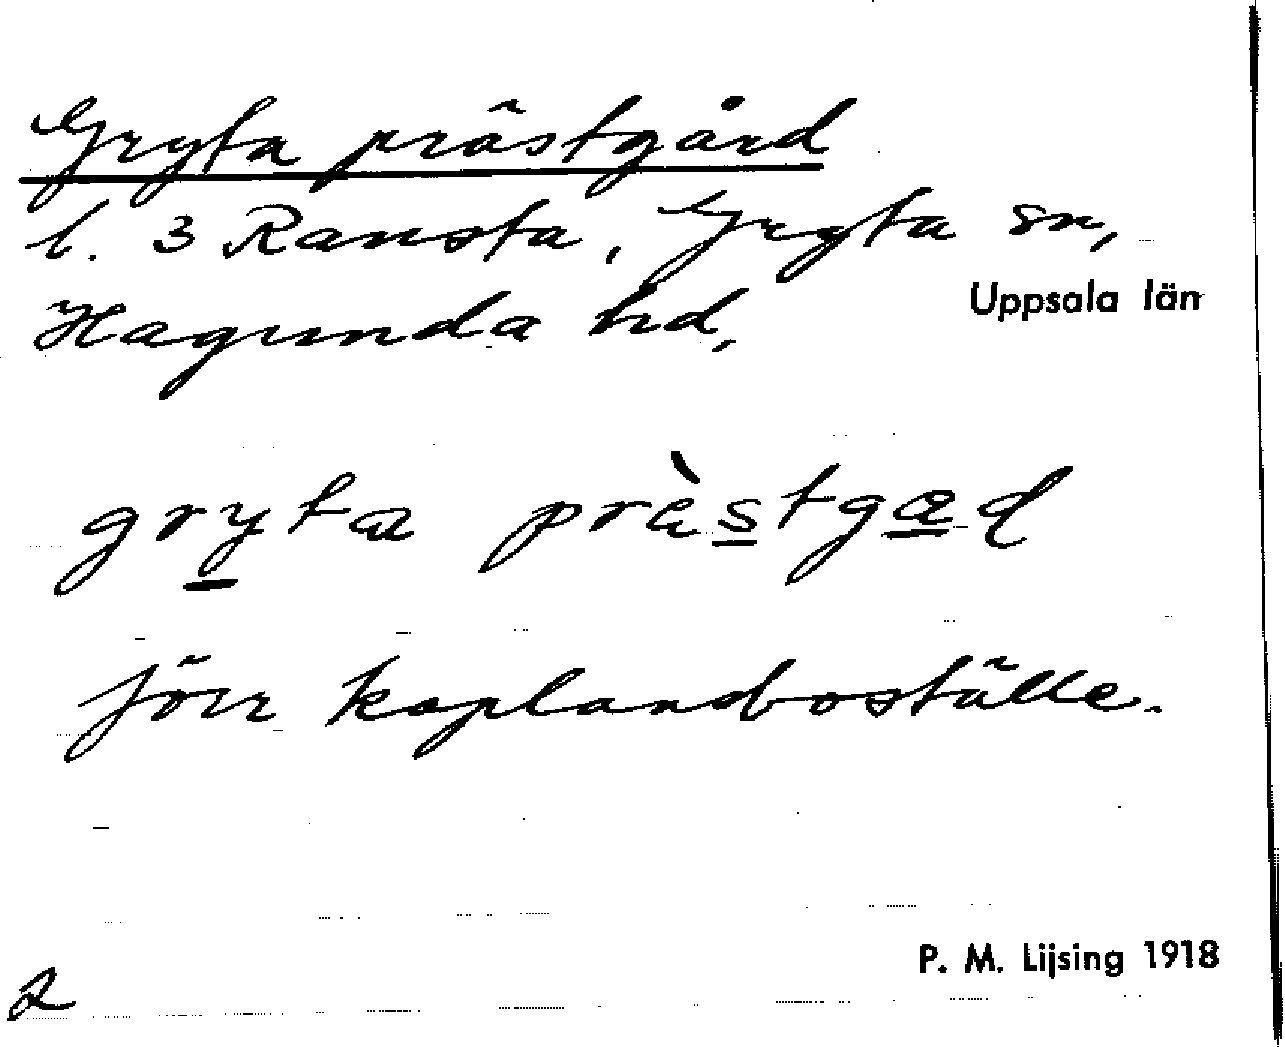 Gryta prästgård
l. 3 Ransta, Gryta sn,
Hagunda hd,
Uppsala län
gryta prèstgæd
förr kaplansboställe.
P. M. Lijsing 1918
2